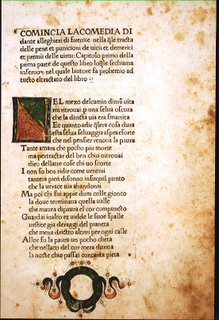 COMINCIA LA COMEDIA DI
dante alleghieri di fiorenze nella q̄le tracta
delle pene et punitioni de uitii et demeriti
et premii delle uirtu: Capitolo primo della
prima parte de questo libro loq̄le sechiama
inferno: nel quale lautore fa prohemio ad
tucto eltractato del libro:
NEL mezo delcamin dinr̄a uita
mi trouai p una selua oscura
che la diricta uia era smarrita
Et quanto adir q̄lera cosa dura
esta selua seluaggia aspra eforte
che nel pensier renoua la paura
Tante amara che pocho piu morte
ma pertractar del ben chio uitrouai
diro dellatre cose chi uo
I non so ben ridir come uentrai
tantera pien disonno insuquil punto
che la uerace uia abandonai
Ma poi chi fui appie dum colle gionto
la doue terminaua quella ualle
che mauea dipaura el cor compuncto
Guardai inalto et uidde le suoe spalle
uestite gia deraggi del pianeta
che mena dricto altrui per ogni calle
Allor fu la paura un pocho cheta
che nellaco del cor mera durata
la nocte chio passai contanta pieta